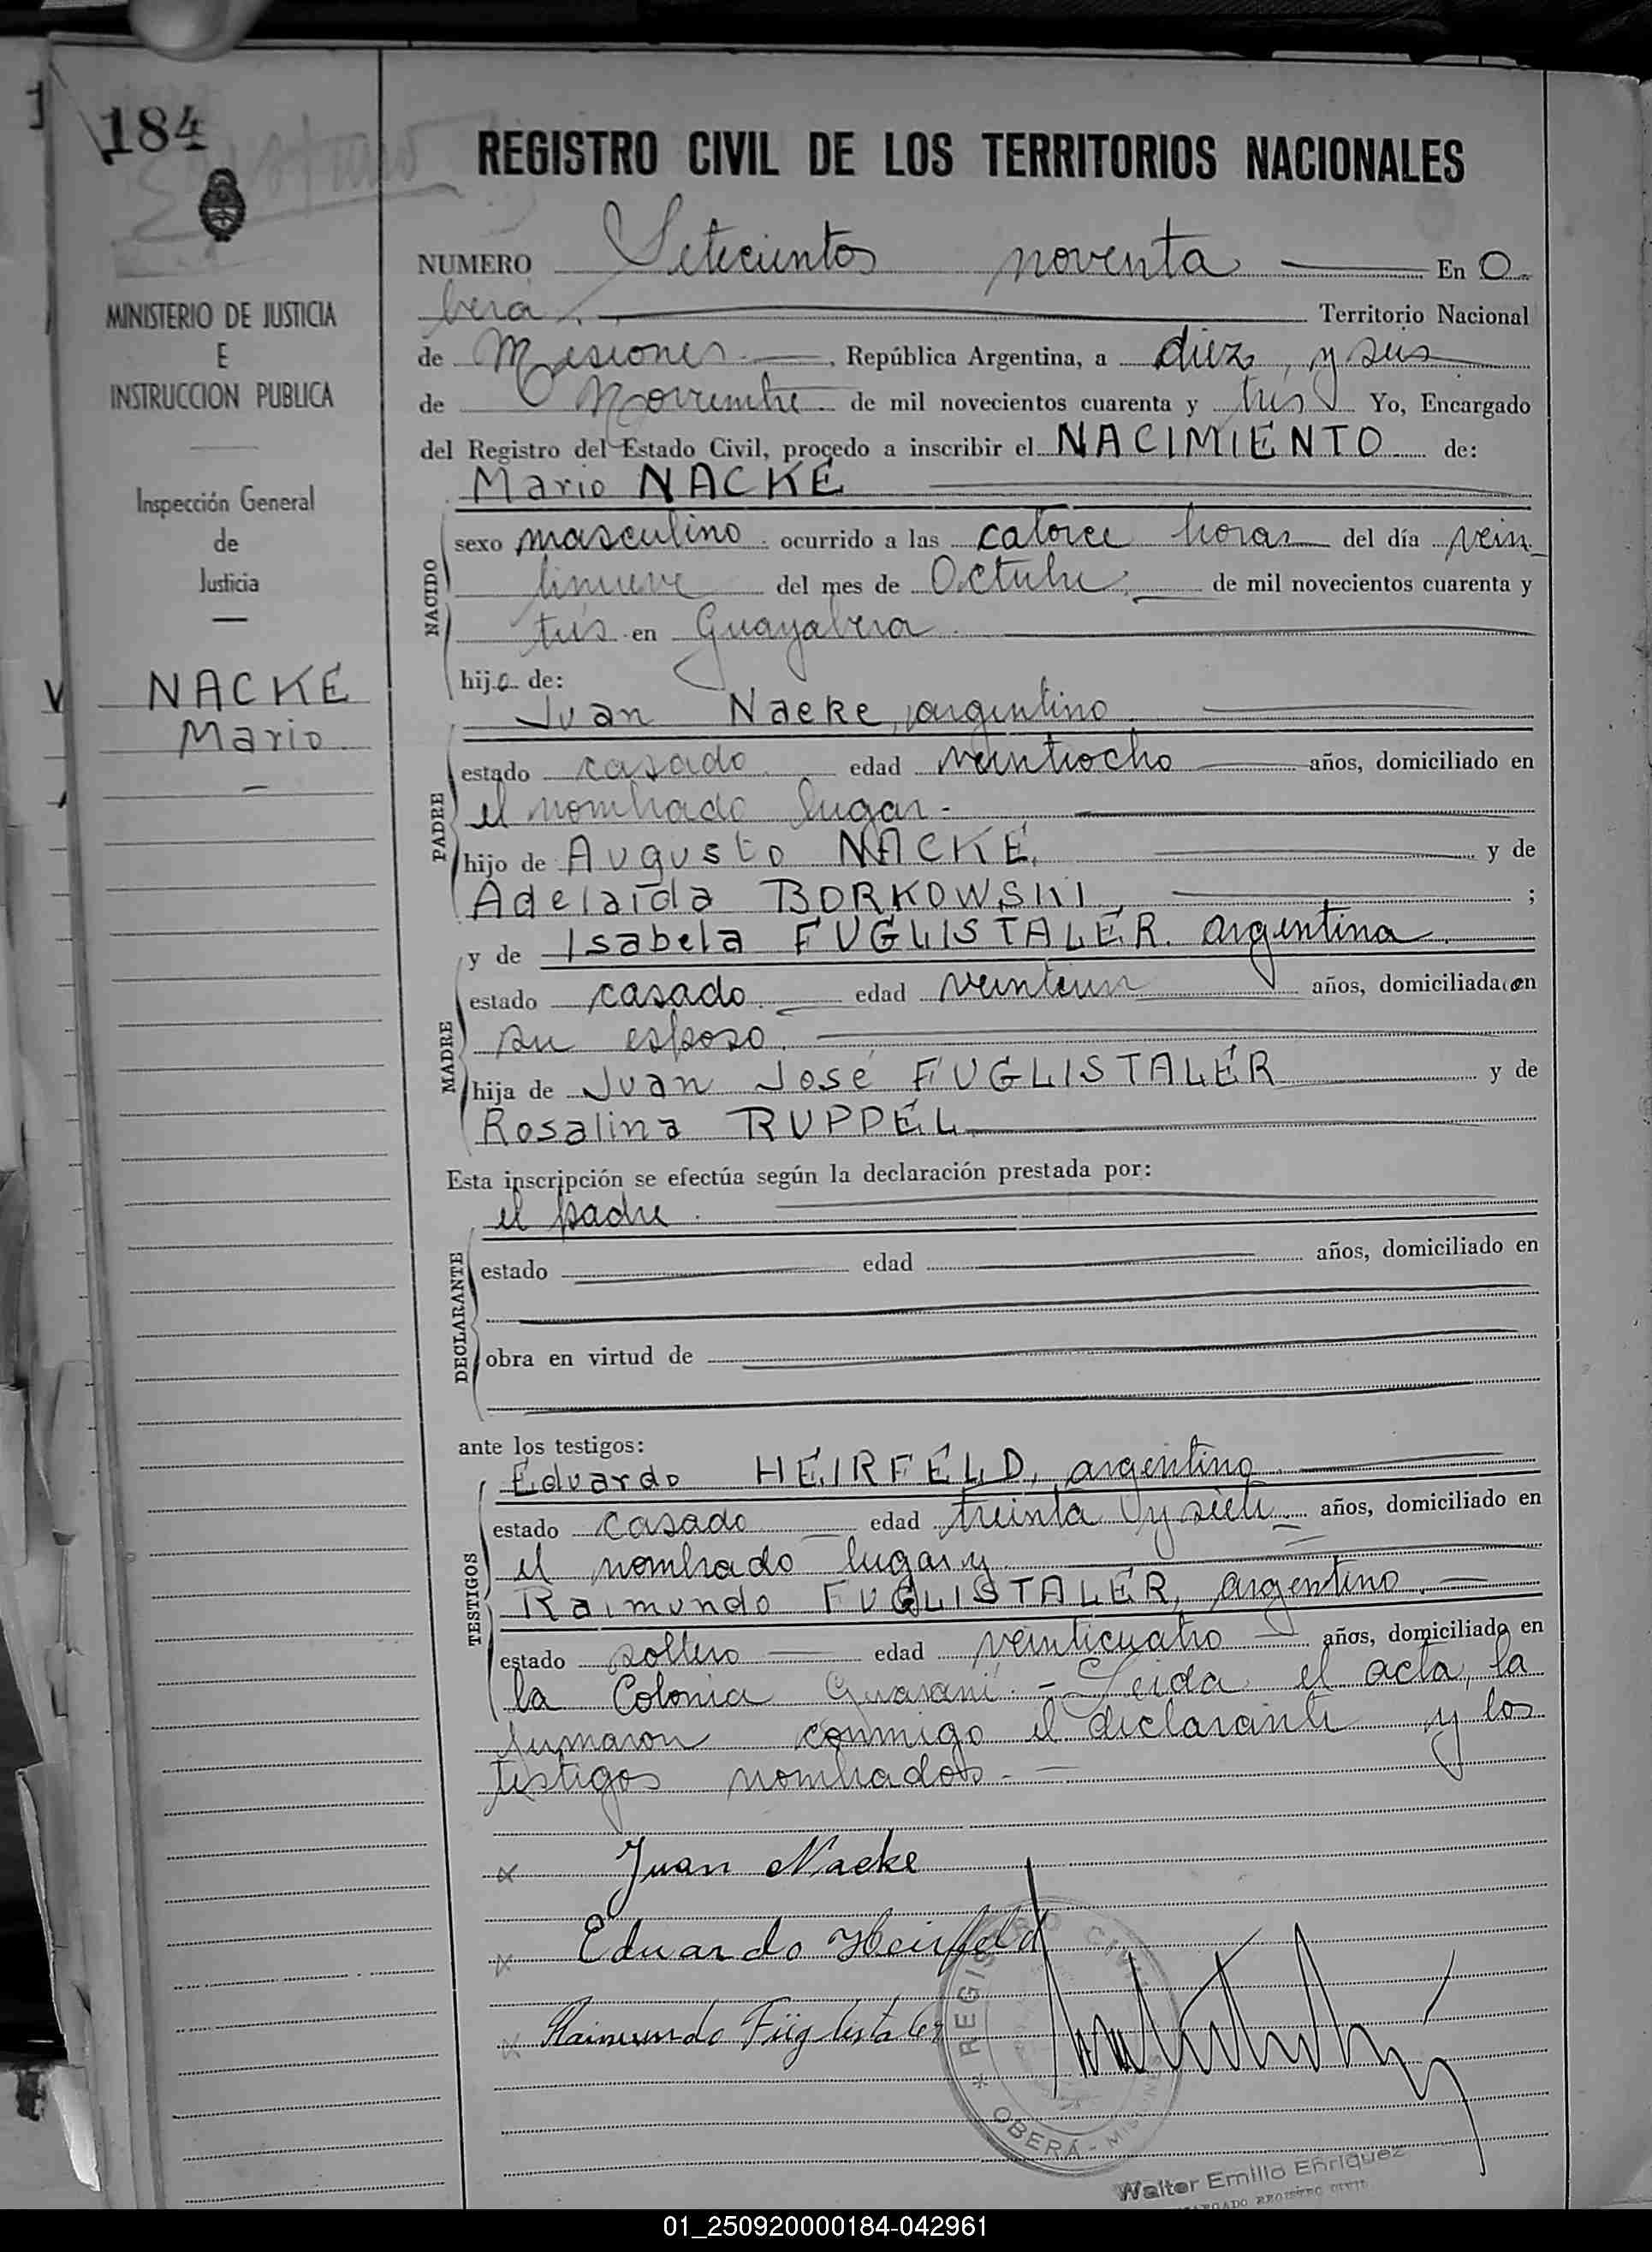 184
REGISTRO CIVIL DE LOS TERRITORIOS NACIONALES
MINISTERIO DE JUSTICIA
E
INSTRUCCION PUBLICA
Inspección General
de
Justicia
NACKE
Mario
NUMERO Setecientos noventa En O-
berá. Territorio Nacional
de Misiones República Argentina, a diez y seis
de Noviembre de mil novecientos cuarenta y tres Yo, Encargado
del Registro del Estado Civil, procedo a inscribir el NACIMIENTO de:
Mario NACKE
NACIDO
sexo masculino ocurrido a las catorce horas del día vein-
tinueve del mes de Octubre de mil novecientos cuarenta y
tres en Guayabera
hijo de:
Juan Nacke, argentino
PADRE
estado casado edad veintiocho años, domiciliado en
el nombrado lugar.-
hijo de Augusto NACKE, y de
Adelaida BORKOWSKI, ;
y de Isabela FUGLISTALER. argentina
MADRE
estado casado edad veintiun años, domiciliada con
su esposo.
hija de Juan José FUGLISTALER y de
Rosalina RUPPEL
Esta inscripción se efectúa según la declaración prestada por:
el padre.
DECLARANTE
estado edad años, domiciliado en
obra en virtud de
ante los testigos:
Eduardo HEIRFELD, argentino
TESTIGOS
estado casado edad treinta y siete años, domiciliado en
el nombrado lugar y
Raimundo FUGLISTALER, argentino.
estado soltero edad veinticuatro años, domiciliado en
la Colonia Guaraní.- Leida el acta, la
firmaron conmigo el declarante y los
testigos nombrados.-
x Juan Nacke
x Eduardo Heirfeld
x Raimundo Füglistaler
REGISTRO CIVIL
OBERÁ - MISIONES
Walter Emilio Enriquez
ENCARGADO REGISTRO CIVIL
01_250920000184-042961